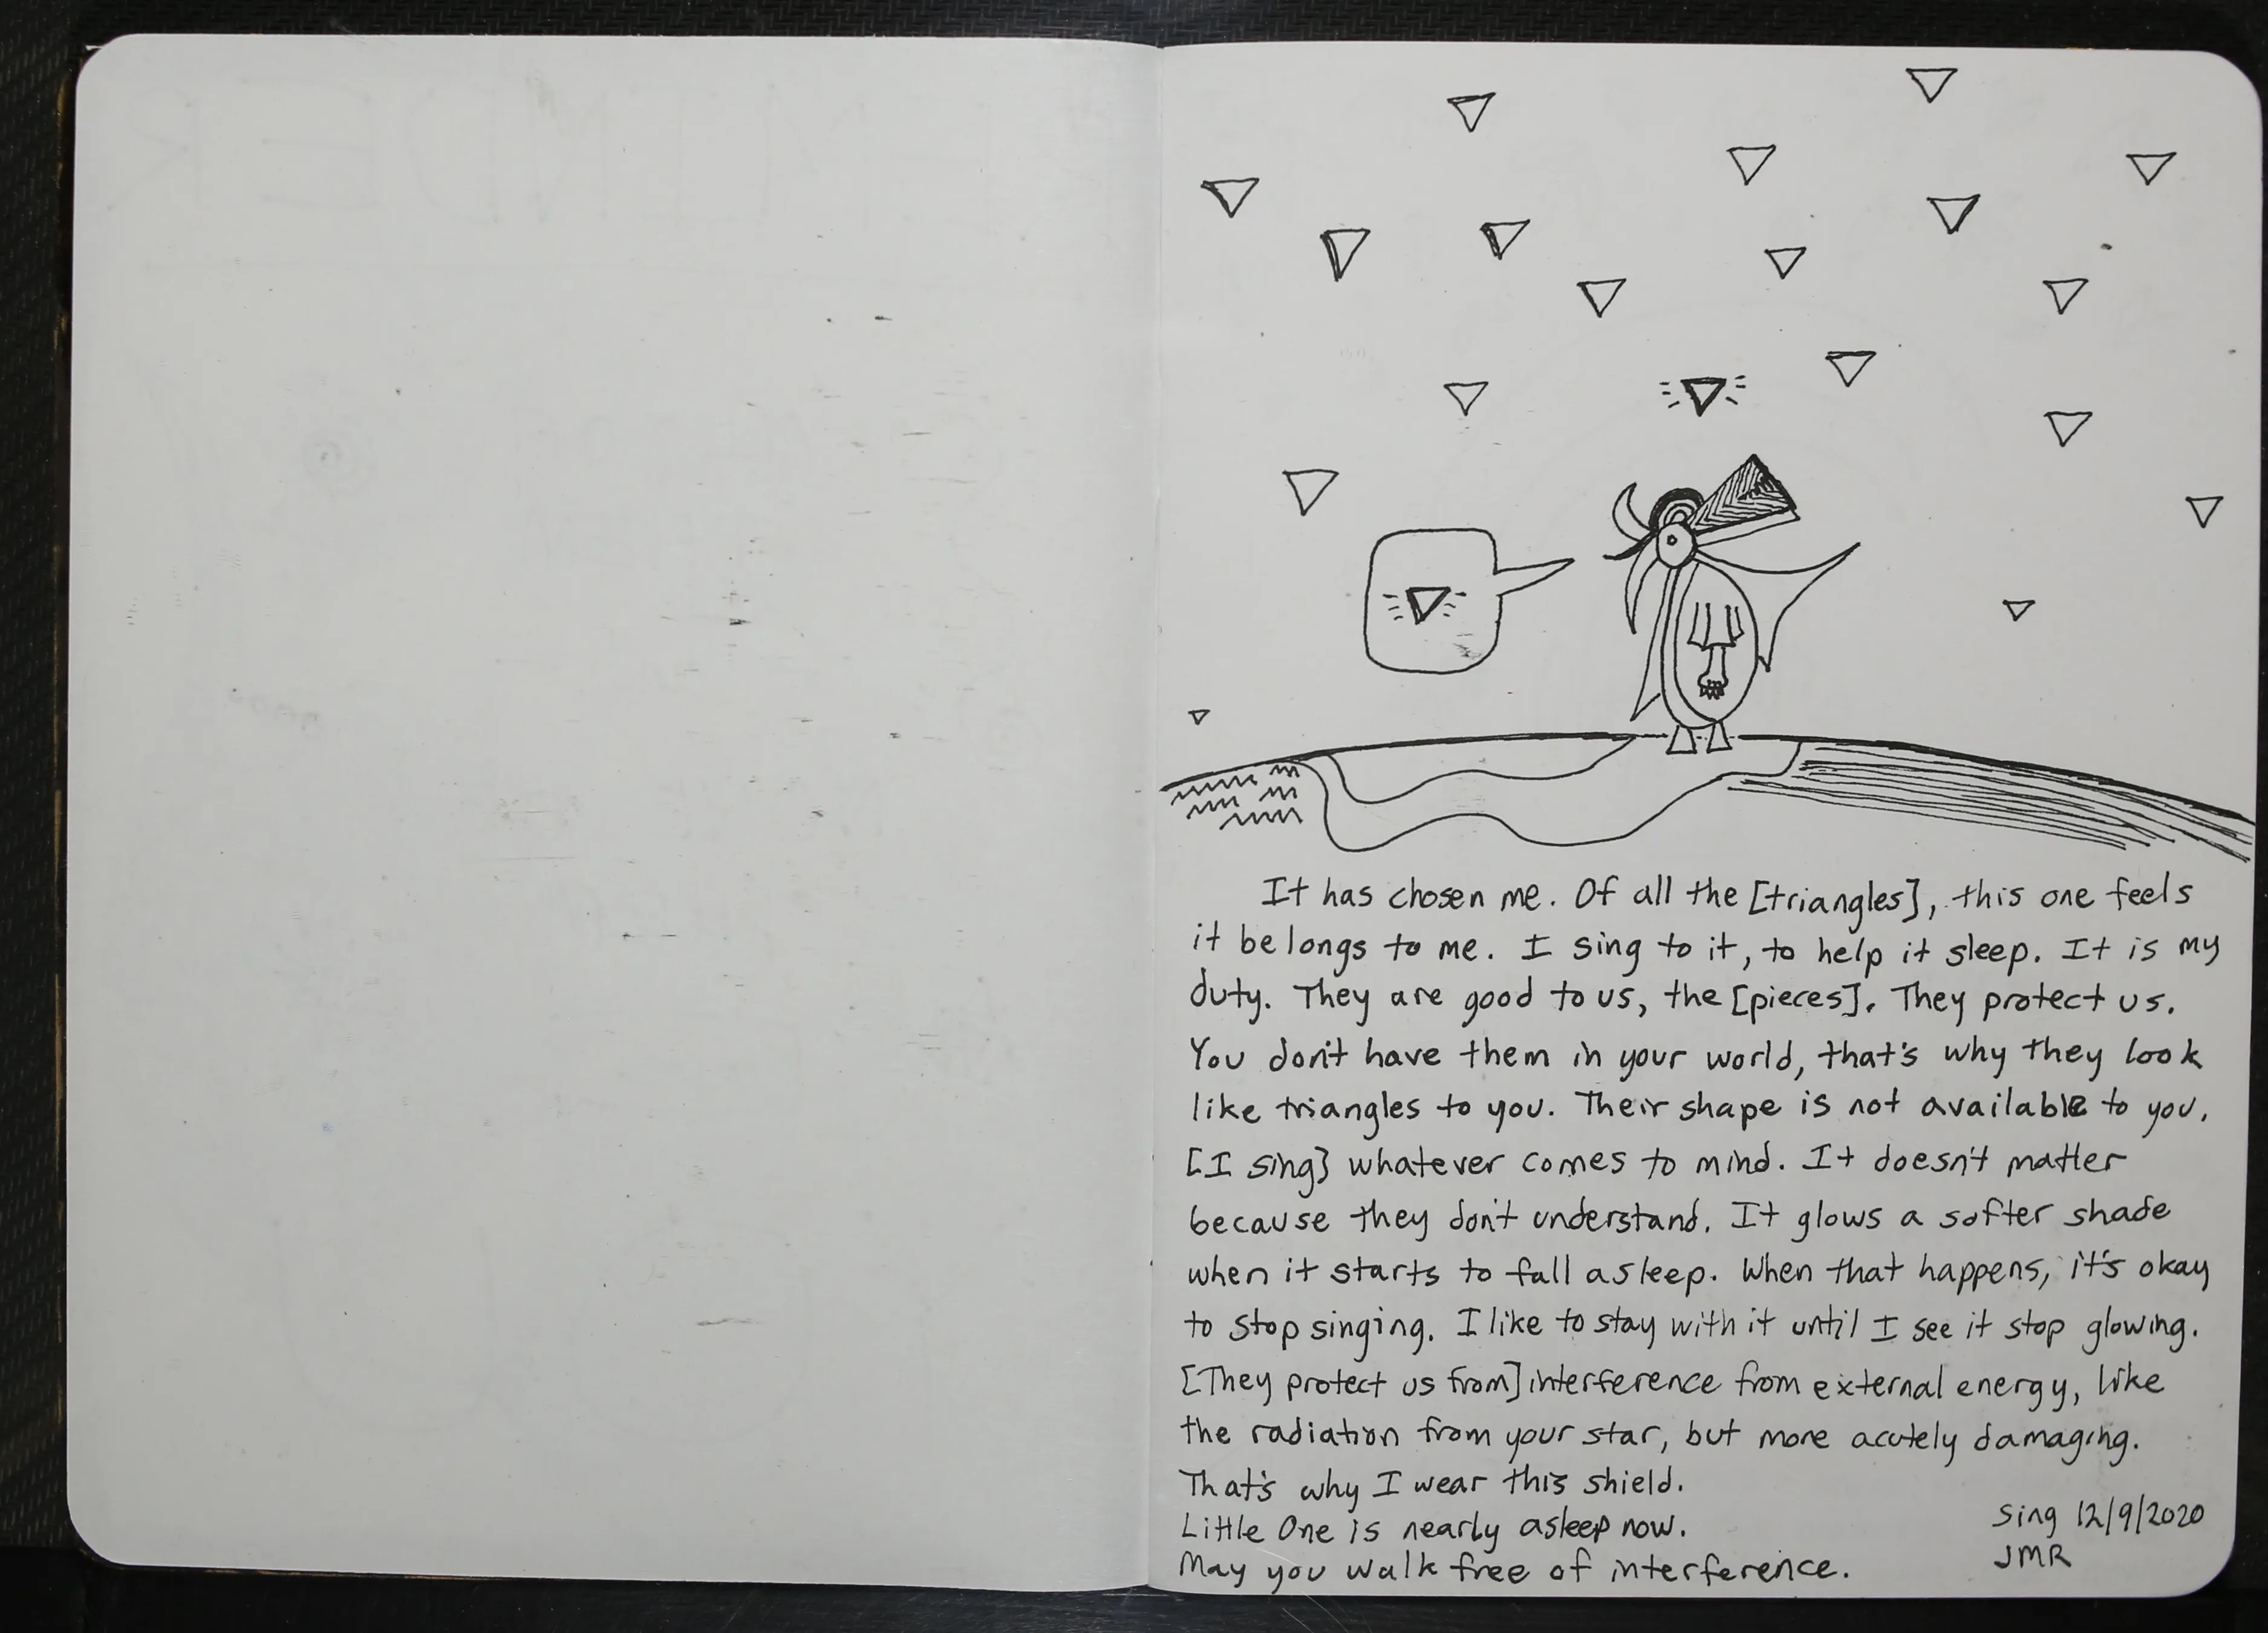 It has chosen me. Of all the [triangles], this one feels
it belongs to me. I sing to it, to help it sleep. It is my
duty. They are good to us, the [pieces]. They protect us.
You don't have them in your world, that's why they look
like triangles to you. Their shape is not available to you.
[I sing] whatever comes to mind. It doesn't matter
because they don't understand. It glows a softer shade
when it starts to fall asleep. When that happens, it's okay
to stop singing. I like to stay with it until I see it stop glowing.
[They protect us from] interference from external energy, like
the radiation from your star, but more acutely damaging.
That's why I wear this shield.
Little One is nearly asleep now.
May you walk free of interference.
Sing 12/9/2020
JMR